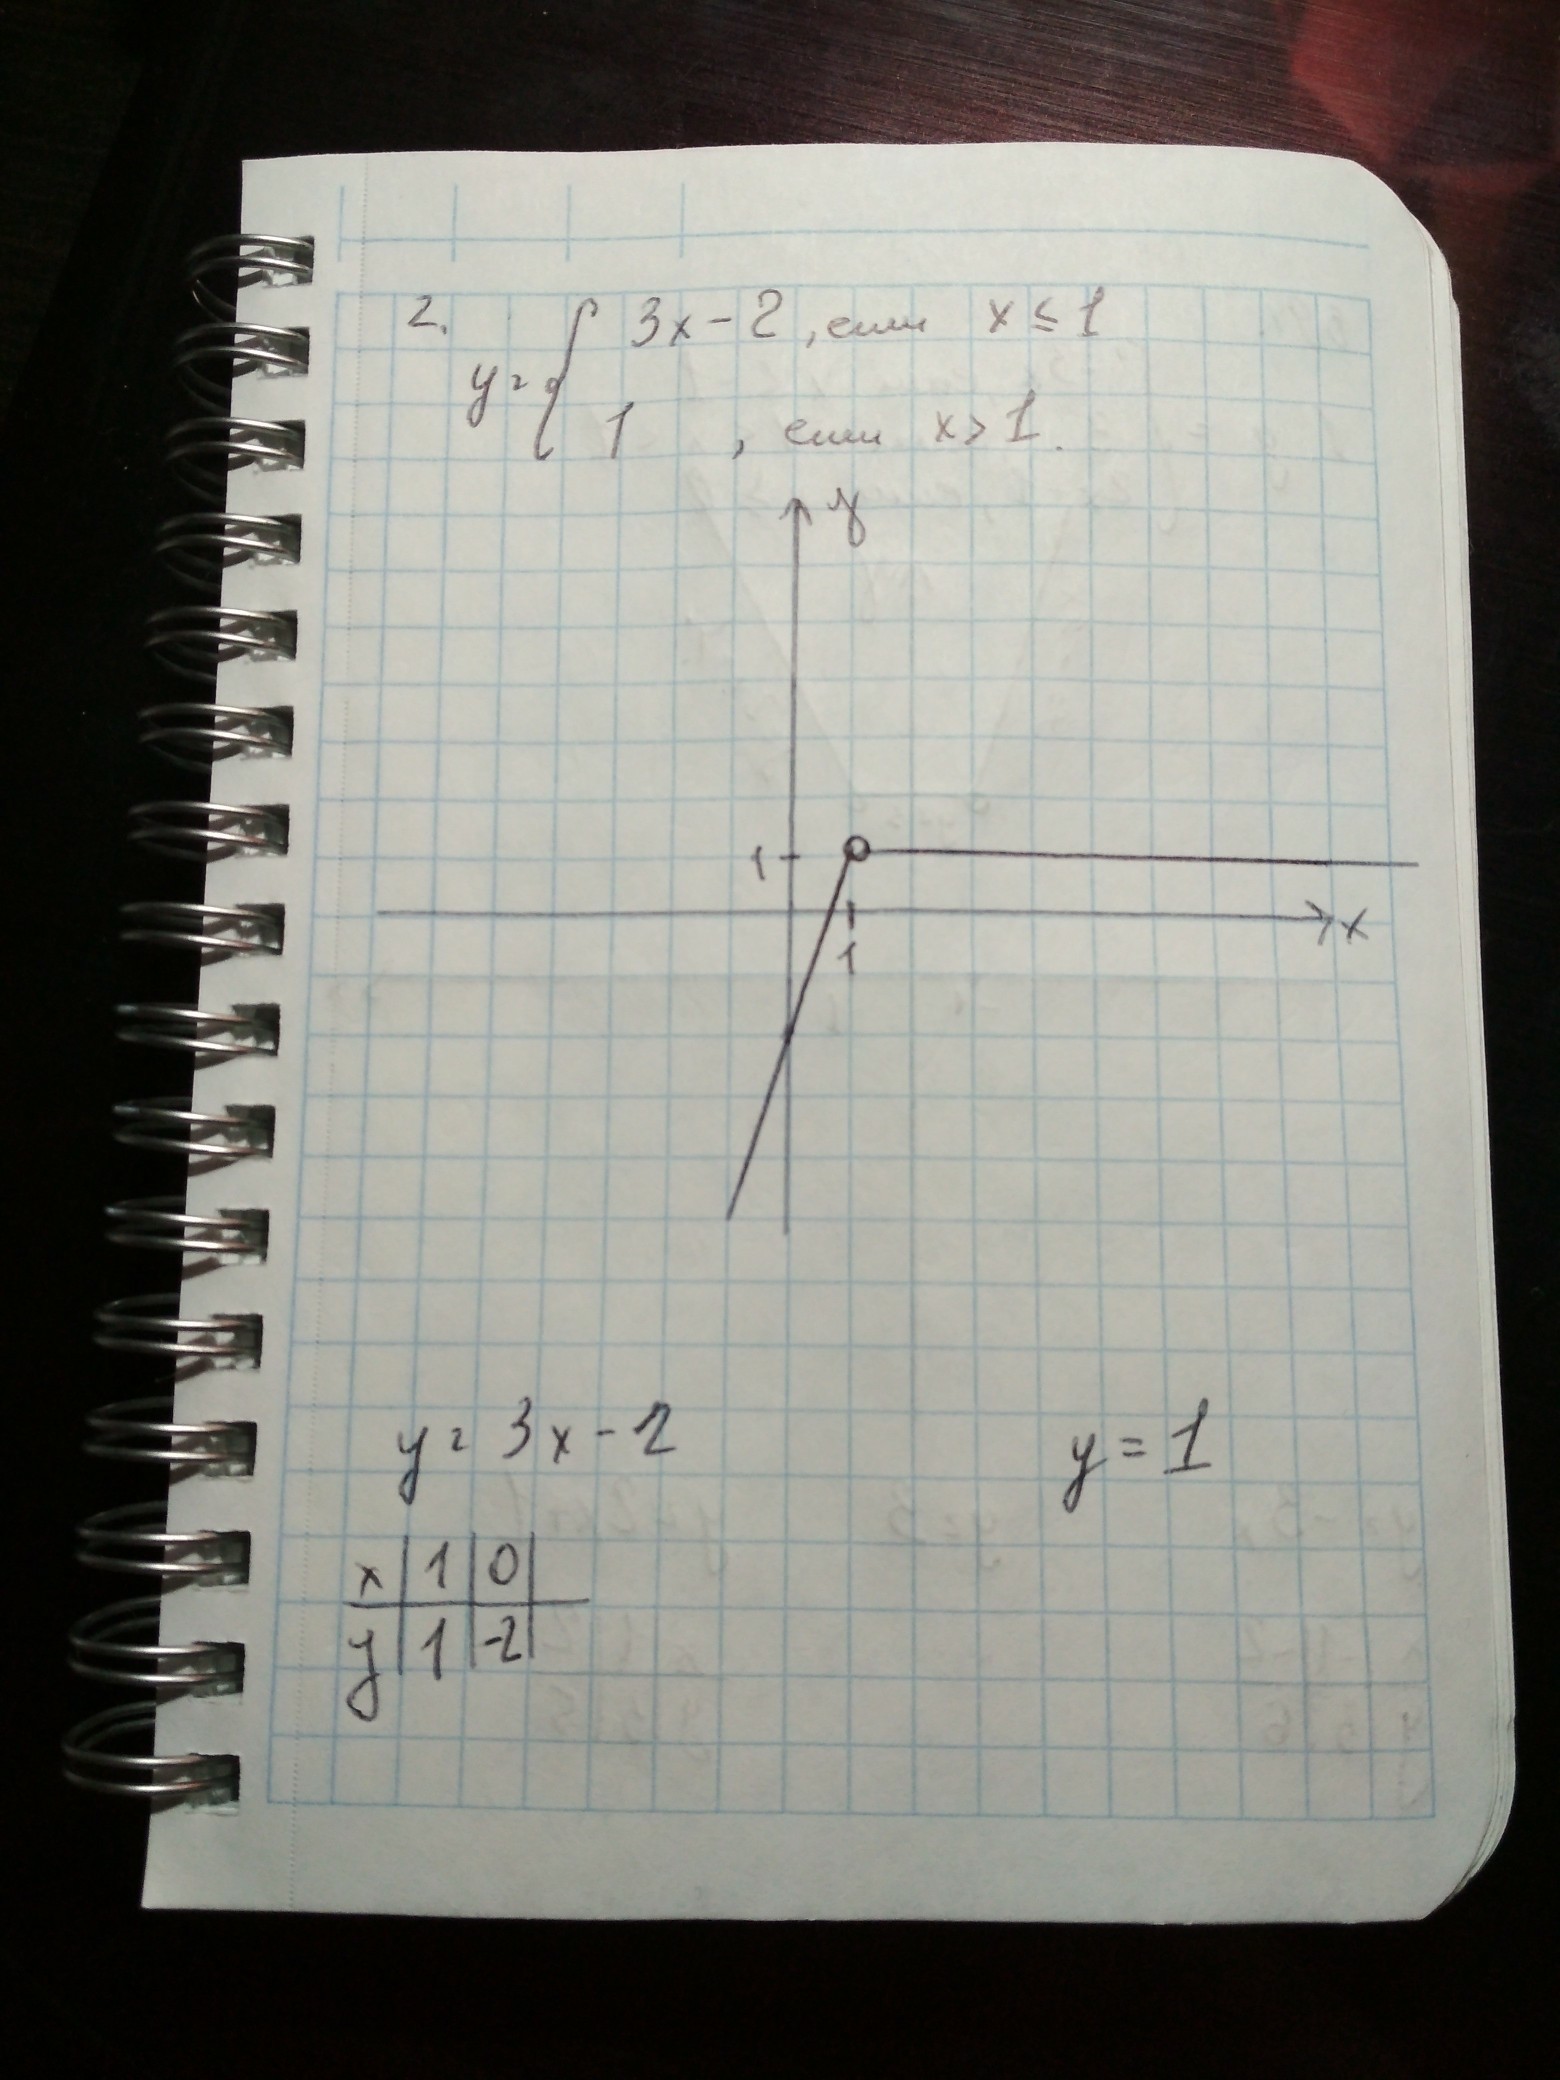 2.
y = { 3x - 2, если x ≤ 1
1 , если x > 1.
y
1
x
1
y = 3x - 2
y = 1
x | 1 | 0 |
y | 1 | -2 |